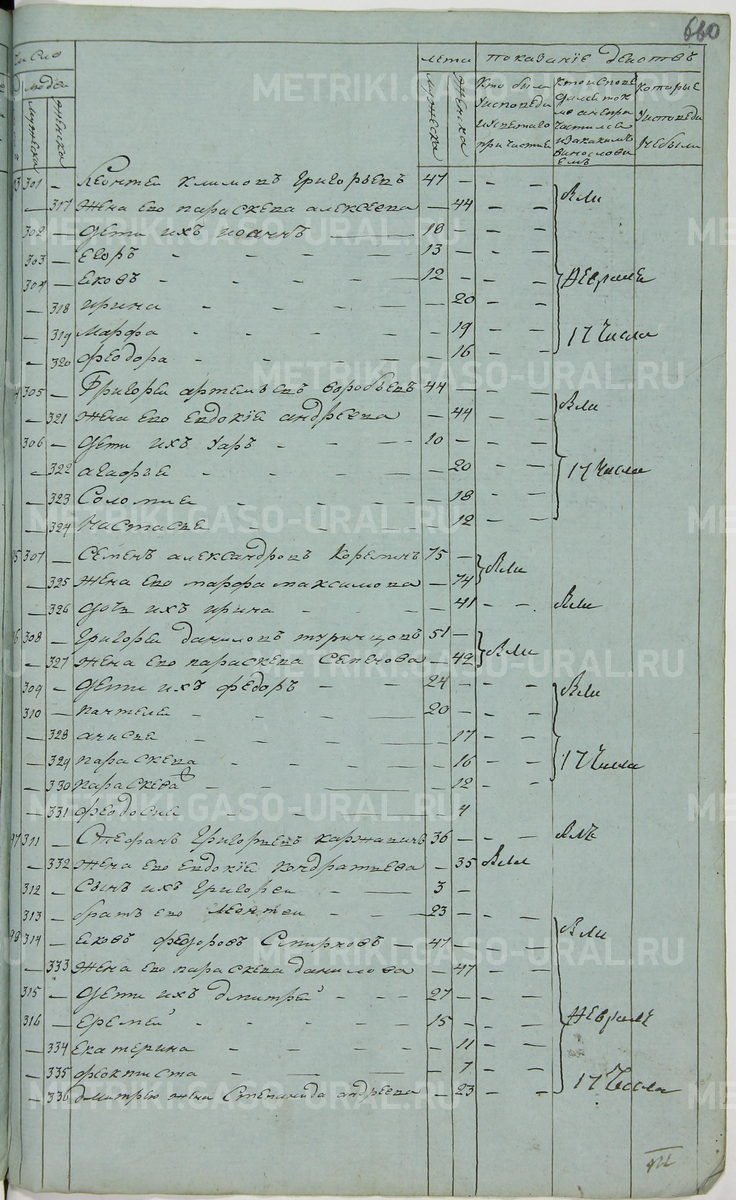 660
Число
людей
мужеска
женска
лета
мужеска
женска
показанїе действъ
Кто были у исповеди и святаго причастия
Кто исповедались токмо а не причастились и за какимъ винословиемъ
Которые у исповеди не были
301 — Леонтей Климовъ Григорьевъ 47 — — —
— 317 Жена его параскева алексеева — 44 — —
302 — Дети ихъ иоаннъ — 18 — — —
303 — Егоръ — 13 — — —
304 — Яковъ — 12 — — —
— 318 ирина — 20 — —
— 319 Марфа — 19 — —
— 320 феодора — 16 — —
Были
Февраля
17 Числа
305 — Григорей артемьевъ воробьевъ 44 — — —
— 321 Жена его Евдокїя андреева — 44 — —
306 — Дети ихъ Уаръ — 10 — — —
— 322 агафья — 20 — —
— 323 Соломия — 18 — —
— 324 Настасья — 12 — —
Были
17 Числа
307 — Семенъ александровъ Корепинъ 75 —
— 325 Жена его марфа максимова — 74
Были
— 326 Дочь ихъ ирина — 41 — — Были
308 — Григорей даниловъ турынцовъ 51 —
— 327 Жена его параскева Семенова — 42
Были
309 — Дети ихъ федоръ — 24 — — —
310 — пантелей — 20 — — —
— 328 анисья — 17 — —
— 329 параскева — 16 — —
— 330 параскева — 12 — —
— 331 феодосия — 4
Были
17 Числа
311 — Стефанъ Григорьевъ каржавинъ 36 — — — Былъ
— 332 Жена его Евдокїя Кондратьева — 35 Была
312 — Сынъ ихъ Григорей — 3 —
313 — братъ его Леонтей — 23 — — —
314 — Яковъ федоровъ Смирновъ — 47 — — —
— 333 Жена его параскева данилова — 47 — —
315 — Дети ихъ дмитрей — 27 — — —
316 — Еремей — 15 — — —
— 334 Екатерина — 11 — —
— 335 феоктиста — 7 — —
— 336 дмитрею жена Степанида андреева — 23 — —
Были
Февраля
17 Числа
METRIKI.GASO-URAL.RU